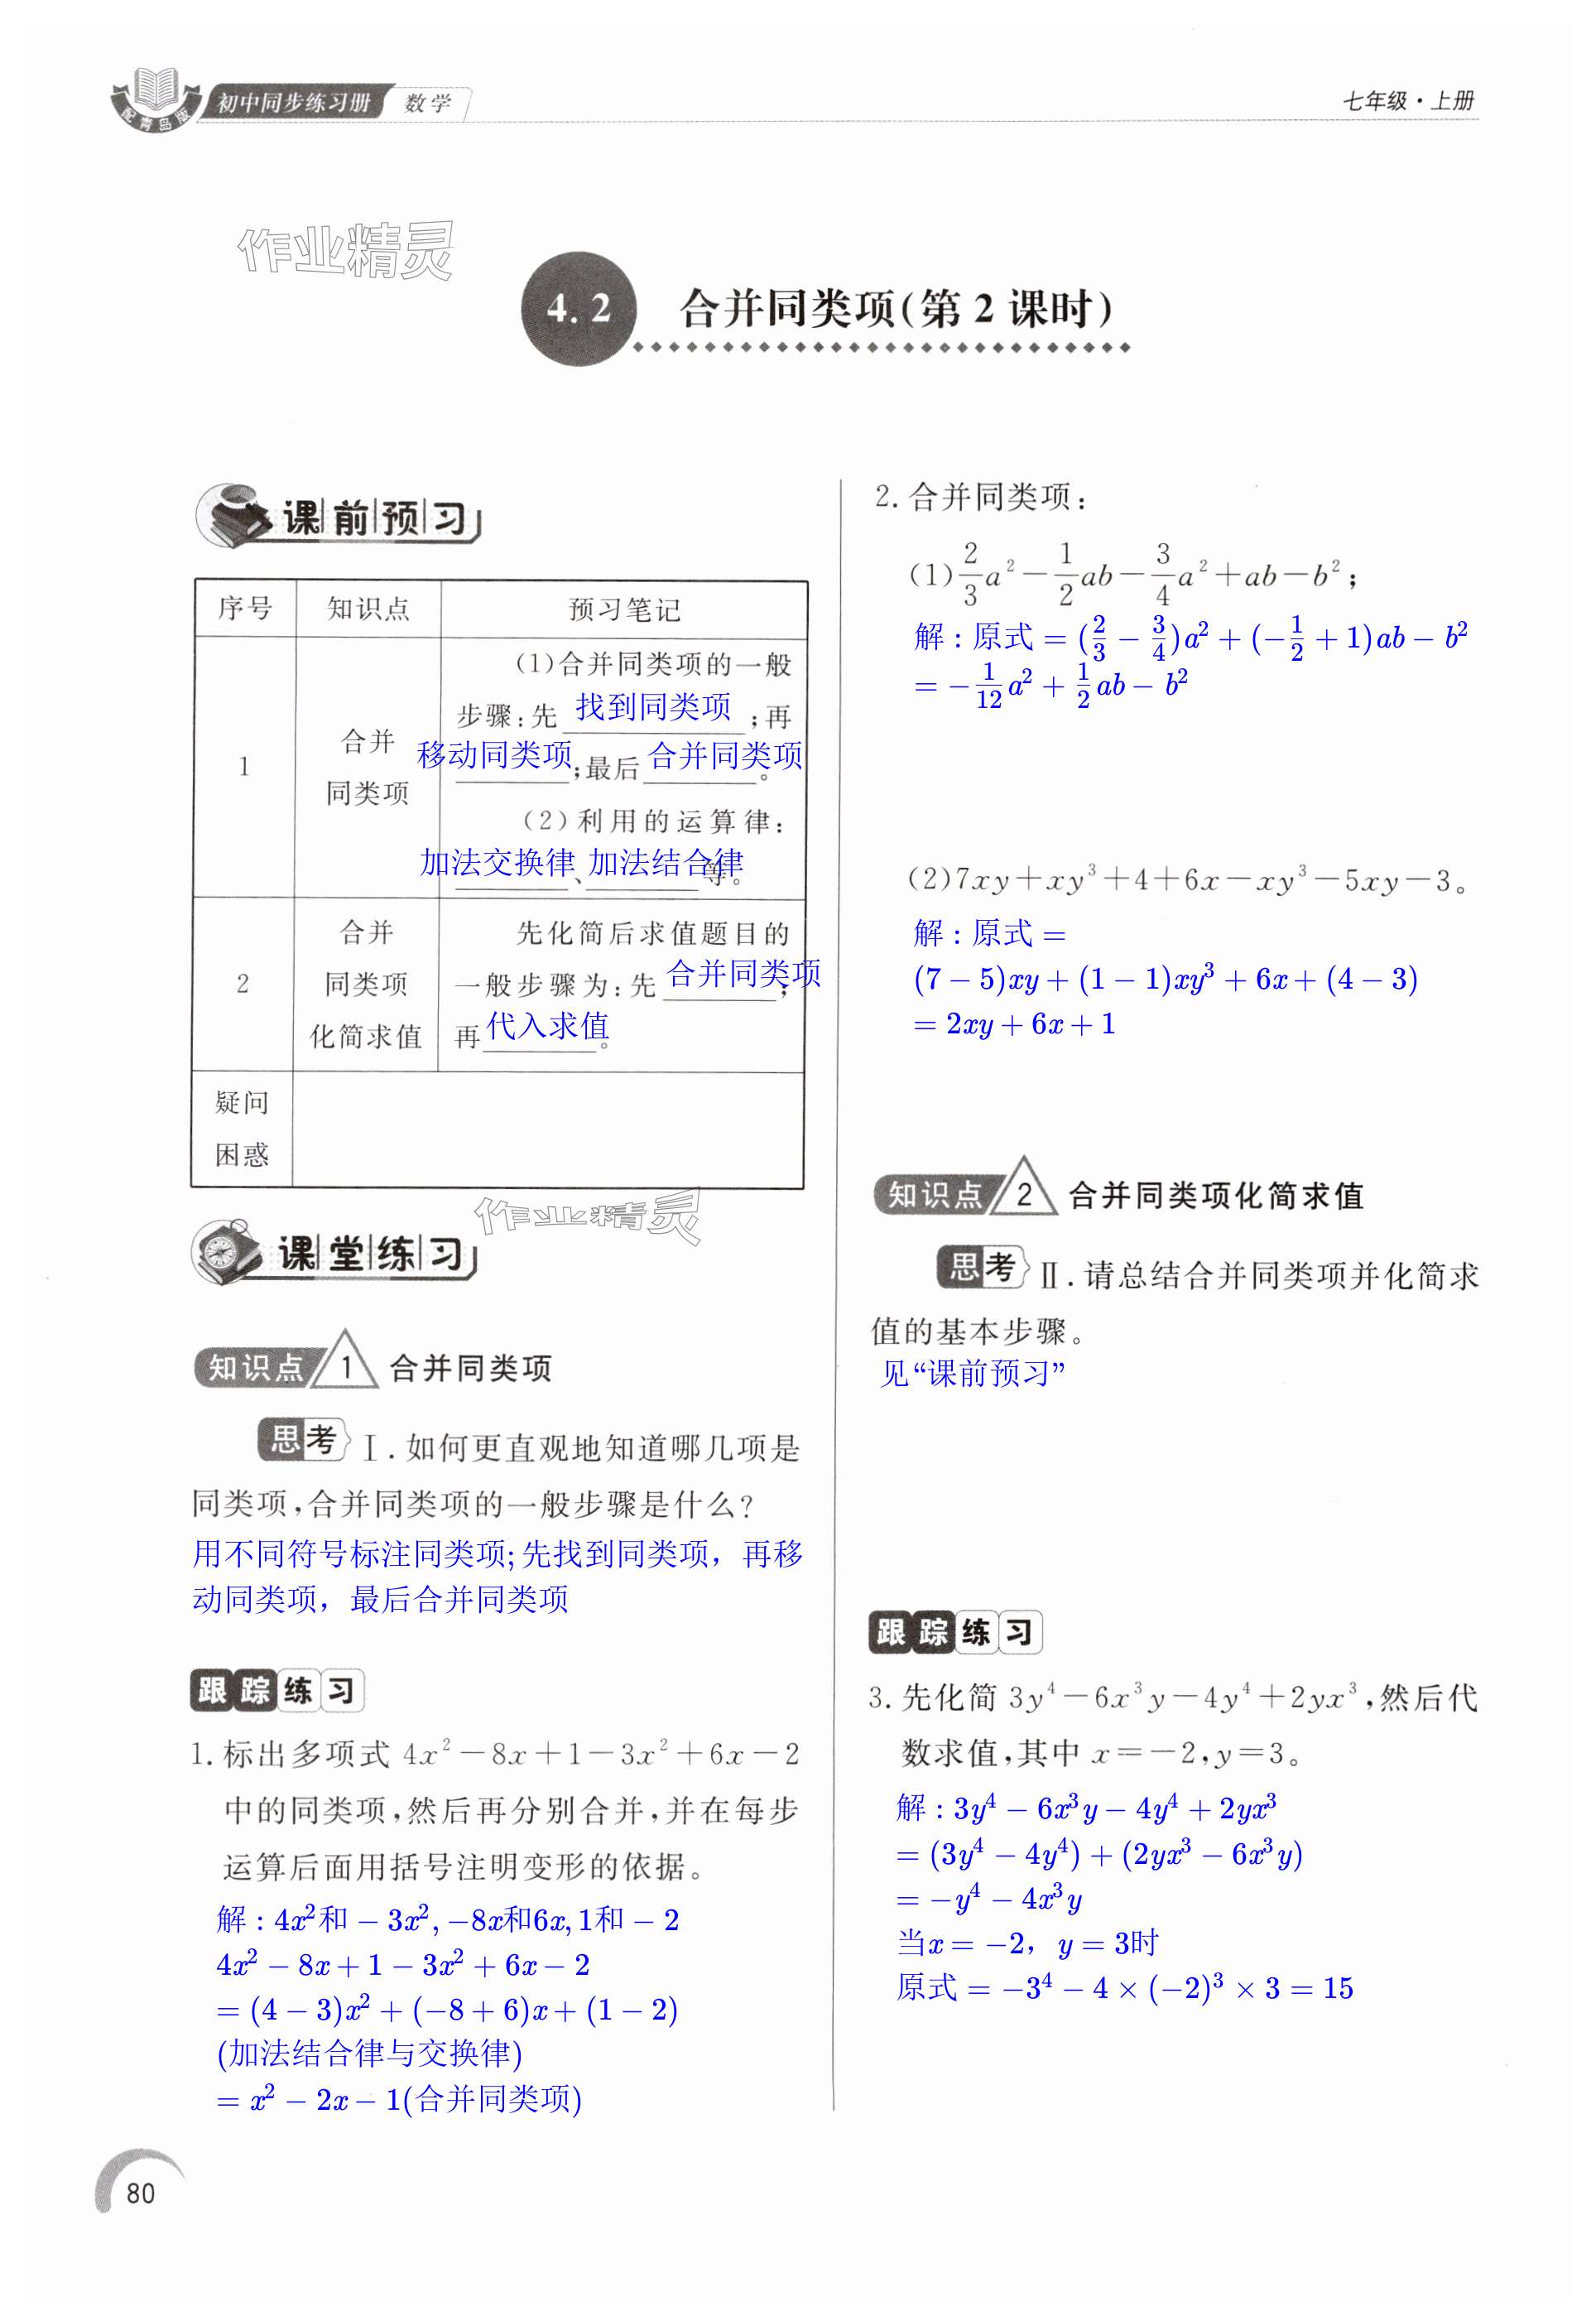 配青岛版
初中同步练习册 数学
七年级·上册
作业精灵
4.2 合并同类项(第2课时)
课前预习
序号 知识点 预习笔记
1
合并
同类项
(1)合并同类项的一般
步骤:先 找到同类项 ;再
移动同类项;最后 合并同类项。
(2)利用的运算律:
加法交换律、加法结合律等。
2
合并
同类项
化简求值
先化简后求值题目的
一般步骤为:先 合并同类项;
再 代入求值。
疑问
困惑
作业精灵
课堂练习
知识点 1 合并同类项
思考 Ⅰ.如何更直观地知道哪几项是
同类项,合并同类项的一般步骤是什么?
用不同符号标注同类项;先找到同类项，再移
动同类项，最后合并同类项
跟踪练习
1.标出多项式 4x²-8x+1-3x²+6x-2
中的同类项,然后再分别合并,并在每步
运算后面用括号注明变形的依据。
解:4x²和-3x²,-8x和6x,1和-2
4x²-8x+1-3x²+6x-2
=(4-3)x²+(-8+6)x+(1-2)
(加法结合律与交换律)
=x²-2x-1(合并同类项)
2.合并同类项:
(1)2/3a²-1/2ab-3/4a²+ab-b²;
解:原式=(2/3-3/4)a²+(-1/2+1)ab-b²
=-1/12a²+1/2ab-b²
(2)7xy+xy³+4+6x-xy³-5xy-3。
解:原式=
(7-5)xy+(1-1)xy³+6x+(4-3)
=2xy+6x+1
知识点 2 合并同类项化简求值
思考 Ⅱ.请总结合并同类项并化简求
值的基本步骤。
见“课前预习”
跟踪练习
3.先化简 3y⁴-6x³y-4y⁴+2yx³,然后代
数求值,其中 x=-2,y=3。
解:3y⁴-6x³y-4y⁴+2yx³
=(3y⁴-4y⁴)+(2yx³-6x³y)
=-y⁴-4x³y
当x=-2，y=3时
原式=-3⁴-4×(-2)³×3=15
80